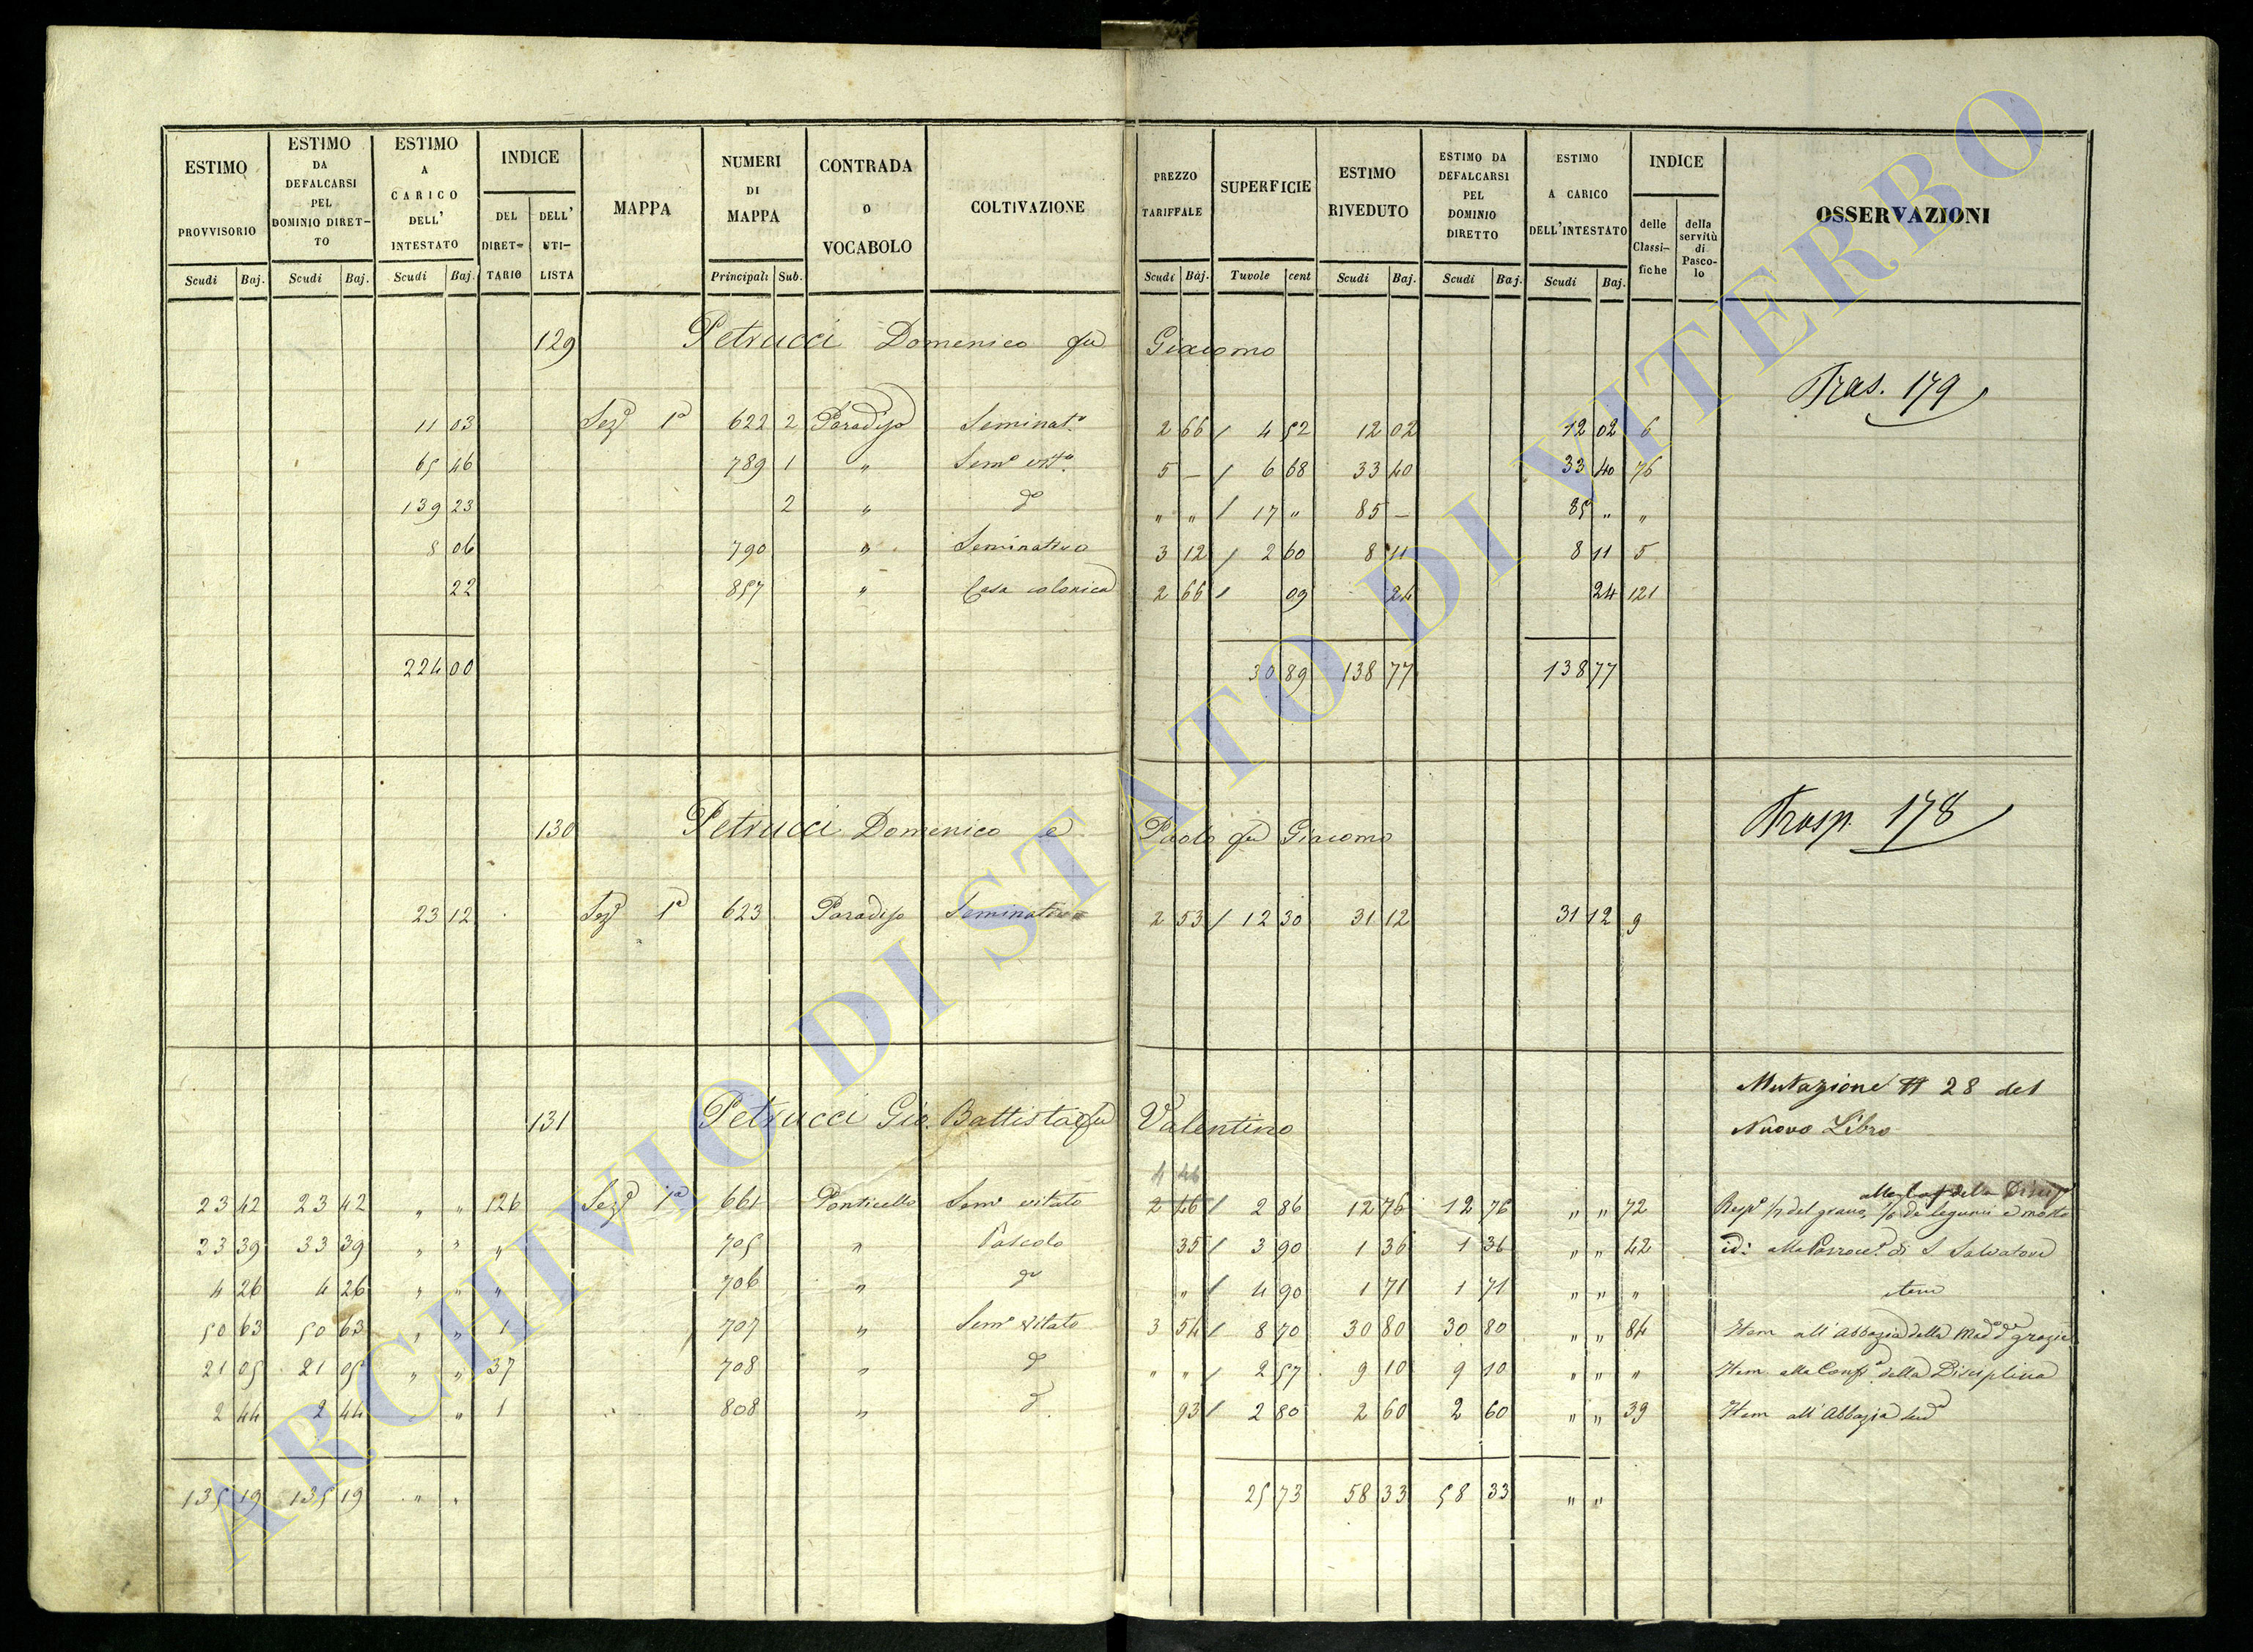 ESTIMO PROVVISORIO Scudi Baj.
ESTIMO DA DEFALCARSI PEL DOMINIO DIRET-TO Scudi Baj.
ESTIMO A CARICO DELL' INTESTATO Scudi Baj.
INDICE DEL DIRET-TARIO DELL' UTI-LISTA
MAPPA
NUMERI DI MAPPA Principali Sub.
CONTRADA O VOCABOLO
COLTIVAZIONE
PREZZO TARIFFALE Scudi Baj.
SUPERFICIE Tavole cent
ESTIMO RIVEDUTO Scudi Baj.
ESTIMO DA DEFALCARSI PEL DOMINIO DIRETTO Scudi Baj.
ESTIMO A CARICO DELL'INTESTATO Scudi Baj.
INDICE delle Classi-fiche della servitù di Pasco-lo
OSSERVAZIONI
129 Petrucci Domenico fu Giacomo
Tras. 179
11 03 Seze 1a 622 2 Paradiso Seminato 2 66 / 4 52 12 02 12 02 6
65 46 789 1 " Semo vito 5 — / 6 68 33 40 33 40 76
139 23 2 " do " " / 17 " 85 — 85 " "
8 06 790 " Seminativo 3 12 / 2 60 8 11 8 11 5
22 857 " Casa colonica 2 66 / 09 24 24 121
224 00 30 89 138 77 138 77
130 Petrucci Domenico e Paolo fu Giacomo
Trasp. 178
23 12 Sezе 1a 623 Paradiso Seminativo 2 53 / 12 30 31 12 31 12 9
Mutazione # 28 del
Nuovo Libro
131 Petrucci Gio. Battista fu Valentino
4 46
23 42 23 42 " " 126 Seze 1a 661 Ponticello Semo vitato 2 46 / 2 86 12 76 12 76 " " 72 Respe 1/7 del grano, 1/6 de legumi e mosto
33 39 33 39 " " " 705 " Pascolo 35 / 3 90 1 36 1 36 " " 42 id: alla di S Salvatore
4 26 4 26 " " " 706 " do " / 4 90 1 71 1 71 " " " item
50 63 50 63 " " 1 707 " Semo vitato 3 54 / 8 70 30 80 30 80 " " 84 Item all'Abbazia della Mada de grazie
21 05 21 05 " " 37 708 " do " " / 2 57 9 10 9 10 " " " Item alla Confa della Disciplina
2 44 2 44 " " 1 808 " do 93 / 2 80 2 60 2 60 " " 39 Item all'Abbazia suda
135 19 135 19 " " 25 73 58 33 58 33 " "
ARCHIVIO DI STATO DI VITERBO